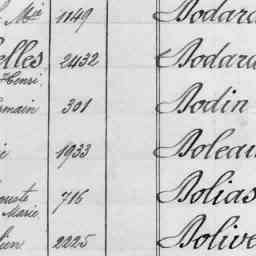 Mie 1849 Bodard
elles 2432 Bodard
Henri
main 301 Bodin
ie 1933 Boleau
uste 716 Bolias
Marie
lien 2225 Bolive